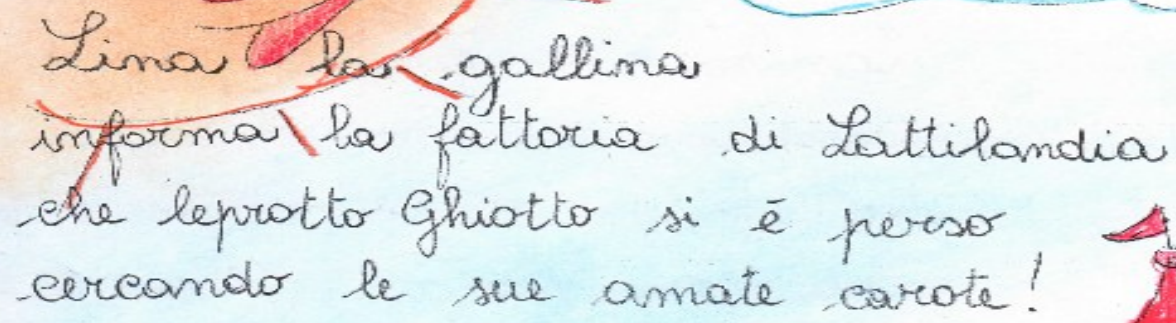 Lina la gallina
informa la fattoria di Lattilandia
che leprotto Ghiotto si è perso
cercando le sue amate carote!